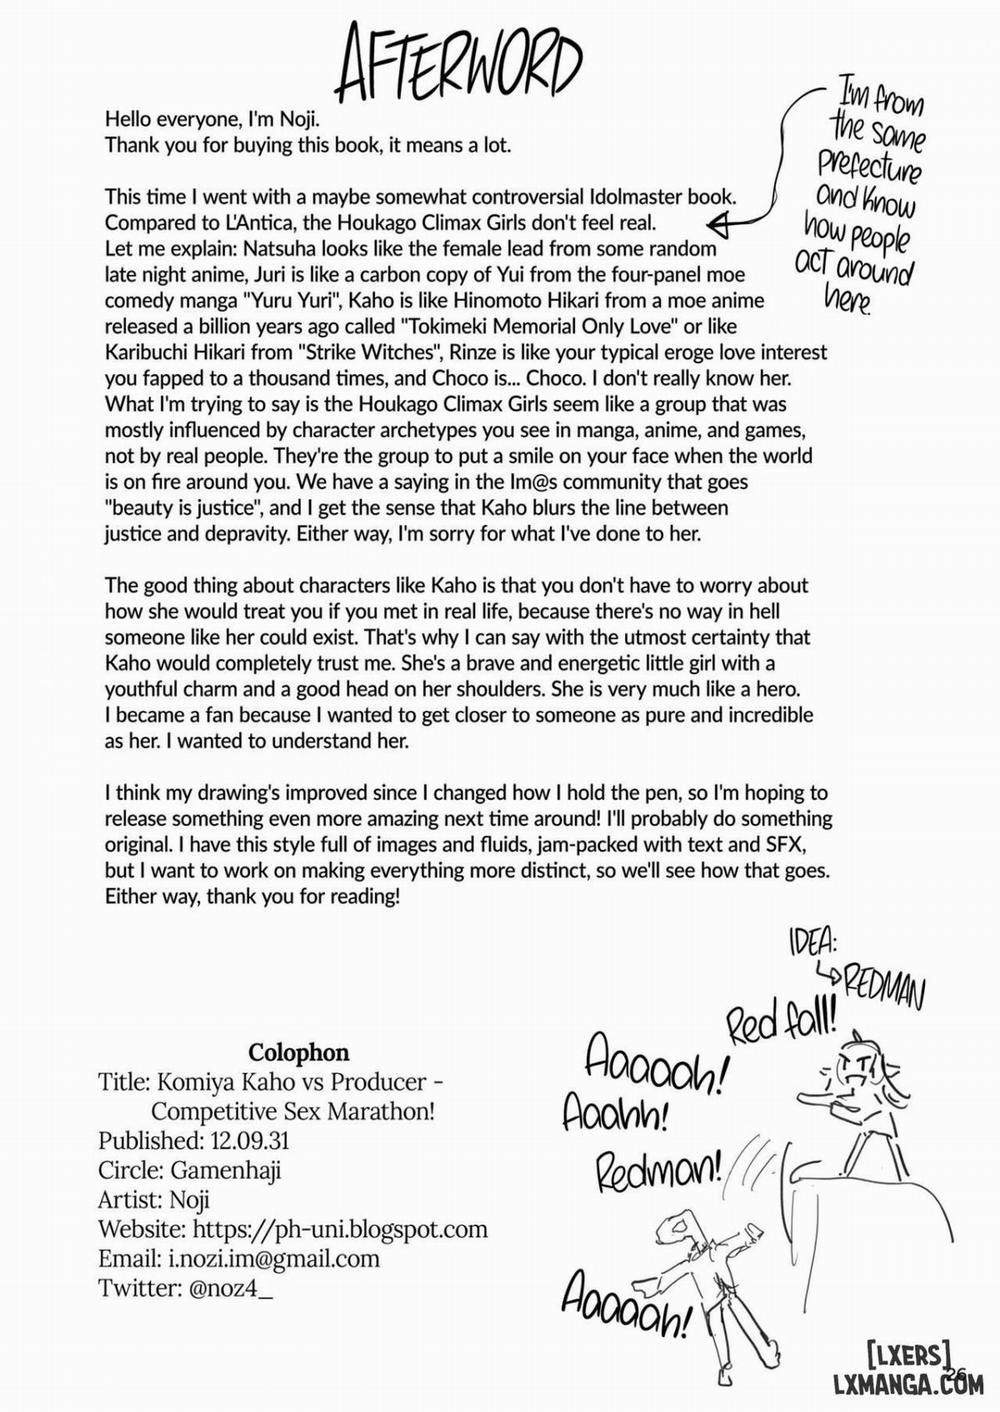 AFTERWORD
Hello everyone, I'm Noji.
Thank you for buying this book, it means a lot.
This time I went with a maybe somewhat controversial Idolmaster book.
Compared to L'Antica, the Houkago Climax Girls don't feel real.
Let me explain: Natsuha looks like the female lead from some random
late night anime, Juri is like a carbon copy of Yui from the four-panel moe
comedy manga "Yuru Yuri", Kaho is like Hinomoto Hikari from a moe anime
released a billion years ago called "Tokimeki Memorial Only Love" or like
Karibuchi Hikari from "Strike Witches", Rinze is like your typical eroge love interest
you fapped to a thousand times, and Choco is... Choco. I don't really know her.
What I'm trying to say is the Houkago Climax Girls seem like a group that was
mostly influenced by character archetypes you see in manga, anime, and games,
not by real people. They're the group to put a smile on your face when the world
is on fire around you. We have a saying in the Im@s community that goes
"beauty is justice", and I get the sense that Kaho blurs the line between
justice and depravity. Either way, I'm sorry for what I've done to her.
The good thing about characters like Kaho is that you don't have to worry about
how she would treat you if you met in real life, because there's no way in hell
someone like her could exist. That's why I can say with the utmost certainty that
Kaho would completely trust me. She's a brave and energetic little girl with a
youthful charm and a good head on her shoulders. She is very much like a hero.
I became a fan because I wanted to get closer to someone as pure and incredible
as her. I wanted to understand her.
I think my drawing's improved since I changed how I hold the pen, so I'm hoping to
release something even more amazing next time around! I'll probably do something
original. I have this style full of images and fluids, jam-packed with text and SFX,
but I want to work on making everything more distinct, so we'll see how that goes.
Either way, thank you for reading!
I'm from
the same
prefecture
and know
how people
act around
here.
IDEA:
REDMAN
Red fall!
Aaaaah!
Aaahh!
Redman!
Aaaaah!
Colophon
Title: Komiya Kaho vs Producer -
Competitive Sex Marathon!
Published: 12.09.31
Circle: Gamenhaji
Artist: Noji
Website: https://ph-uni.blogspot.com
Email: i.nozi.im@gmail.com
Twitter: @noz4_
[LXERS]
26
LXMANGA.COM